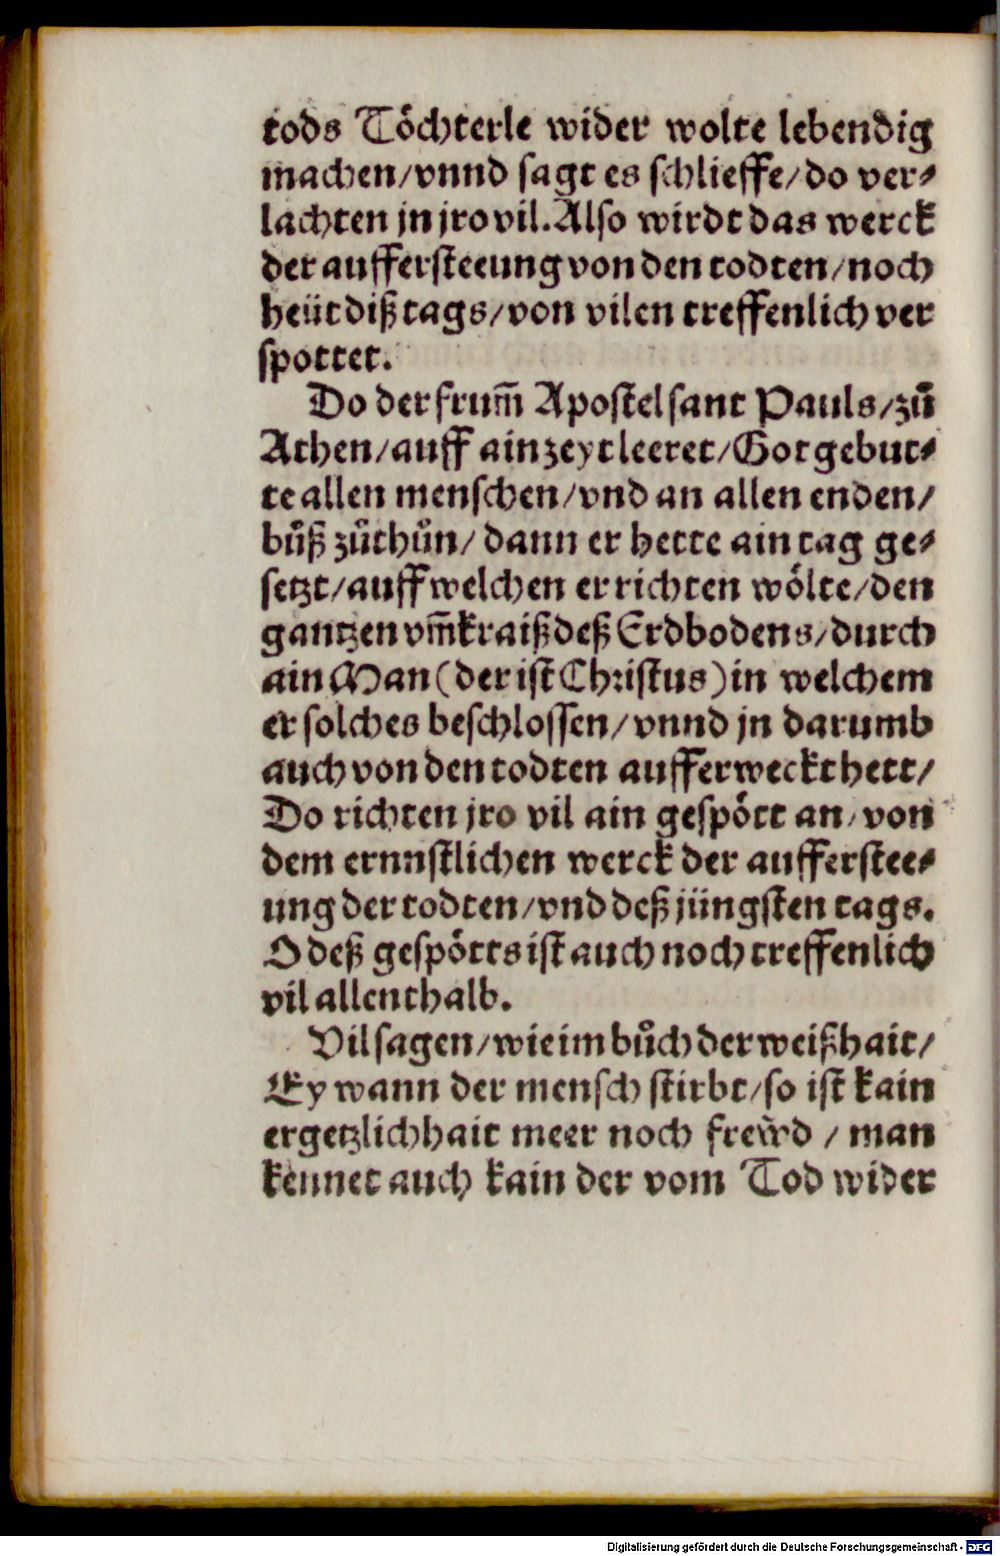 tods Töchterle wider wolte lebendig
machen/vnnd sagt es schlieffe/do ver⸗
lachten jn jro vil. Also wirdt das werck
der auffersteeung von den todten/noch
heüt diß tags/von vilen treffenlich ver
spottet.
Do der frum̃ Apostel sant Pauls/zů
Athen/auff ain zeyt leeret/Got gebut⸗
te allen menschen/vnd an allen enden/
bůß zůthůn/dann er hette ain tag ge⸗
setzt/auff welchen er richten wölte/den
gantzen vm̃kraiß deß Erdbodens/durch
ain Man (der ist Christus) in welchem
er solches beschlossen/vnnd jn darumb
auch von den todten aufferweckt hett/
Do richten jro vil ain gespött an/von
dem ernnstlichen werck der aufferstee⸗
ung der todten/vnd deß jüngsten tags.
O deß gespötts ist auch noch treffenlich
vil allenthalb.
Vil sagen/wie im bůch der weißhait/
Ey wann der mensch stirbt/so ist kain
ergetzlichhait meer noch frewd / man
kennet auch kain der vom Tod wider
Digitalisierung gefördert durch die Deutsche Forschungsgemeinschaft - DFG